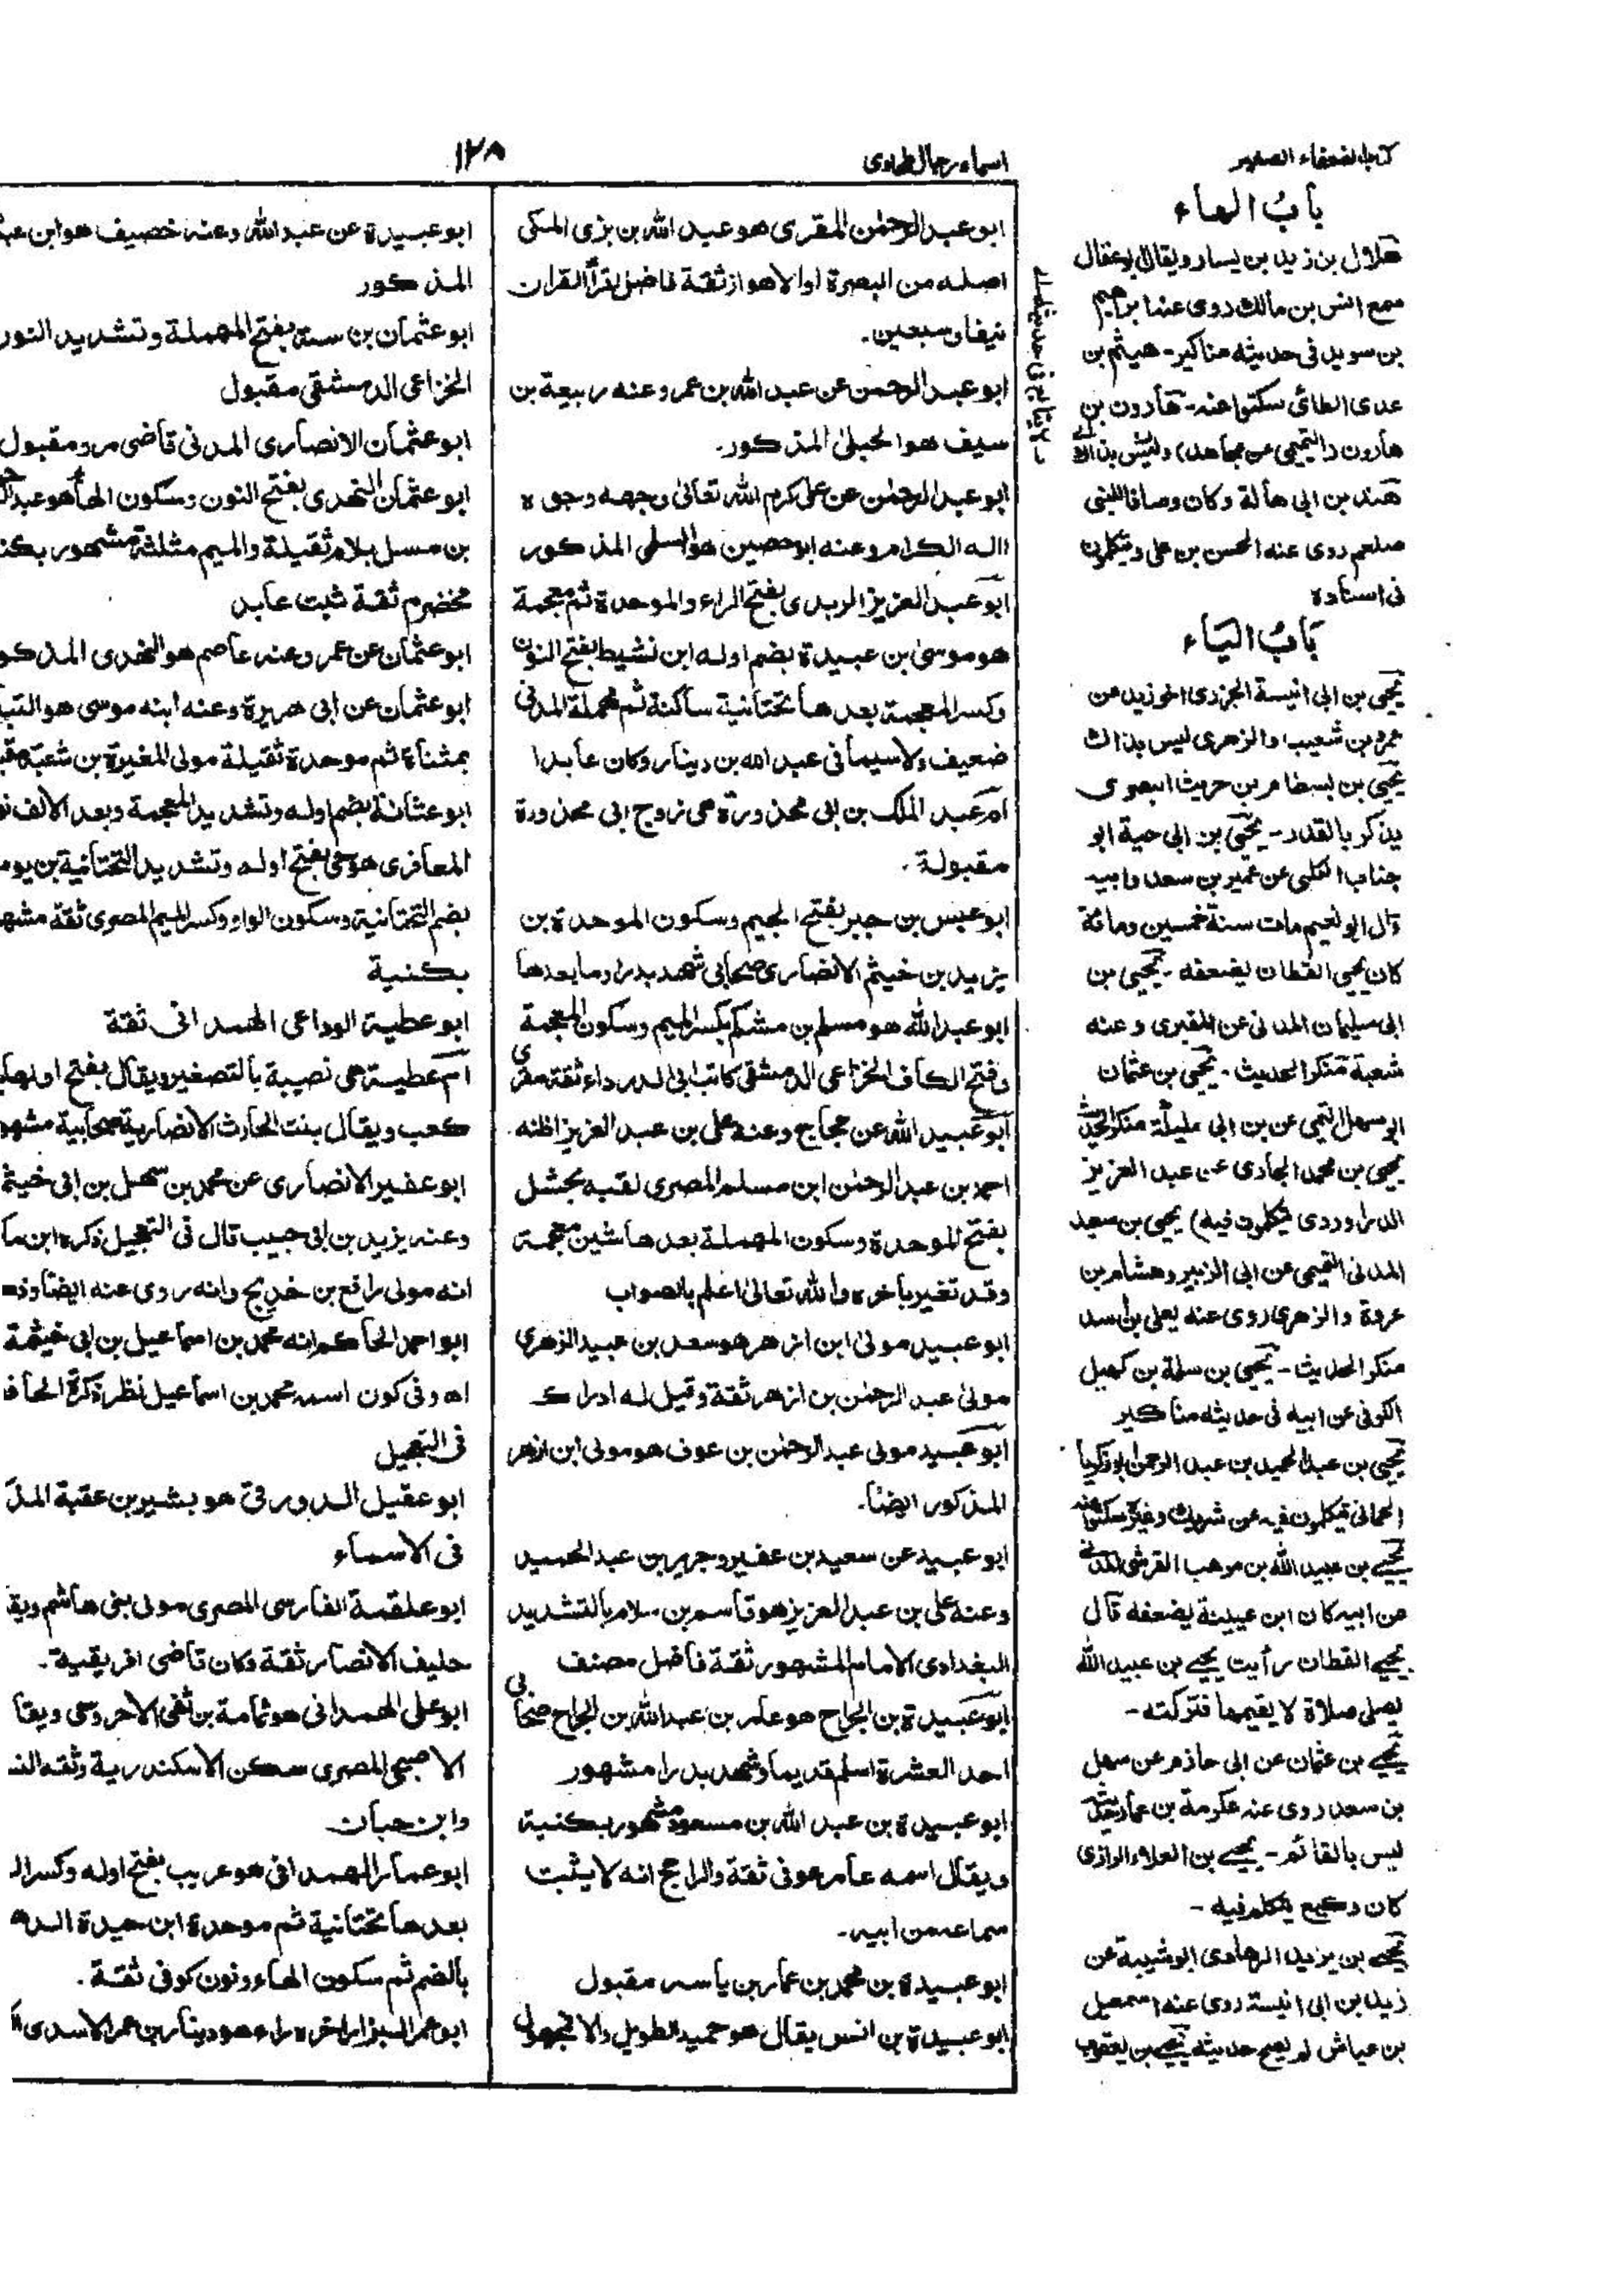 كتاب الضعفاء الصغير
اسماء رجال طحاوى
١٢٨
باب الهاء
هلال بن زيد بن يسار ويقال ابو عقال
سمع انس بن مالك روى عنه ابراهيم
بن سويد فى حديثه مناكير - هيثم بن
عدى الطائى سكتوا عنه - هارون بن
هارون (التيمى عن مجاهد) وليس بذاك
هند بن ابى هالة وكان وصافا للنبى
صلعم روى عنه الحسن بن على ويتكلمون
فى اسناده
لا يتابع فى حديثه
باب الياء
يحيى بن ابى انيسة الجزرى اخو زيد عن
عمرو بن شعيب والزهرى ليس بذاك
يحيى بن بسطام بن حريث البصرى
يذكر بالقدر - يحيى بن ابى حية ابو
جناب الكلبى عن عمير بن سعد وابيه
قال ابو نعيم مات سنة خمسين ومائة
كان يحيى القطان يضعفه - يحيى بن
ابى سليمان المدنى عن المقبرى وعنه
شعبة منكر الحديث - يحيى بن عثمان
ابو سهل التيمى عن بن ابى مليكة منكر الحديث
يحيى بن محمد الجارى عن عبد العزيز
الدراوردى يتكلمون فيه) يحيى بن سعيد
المدنى التميمى عن ابى الزبير وهشام بن
عروة والزهرى روى عنه يعلى بن اسد
منكر الحديث - يحيى بن سلمة بن كهيل
الكوفى عن ابيه فى حديثه مناكير
يحيى بن عبد الحميد بن عبد الرحمن ابو زكريا
الحمانى يتكلمون فيه عن شريك وغيره سكتوا عنه
يحيى بن عبيد الله بن موهب القرشى المدنى
عن ابيه كان ابن عيينة يضعفه قال
يحيى القطان رأيت يحيى بن عبيد الله
يصلى صلاة لا يقيمها فتركته -
يحيى بن عثمان عن ابى حازم عن سهل
بن سعد روى عنه عكرمة بن عمار
ليس بالقائم - يحيى بن العلاء الرازى
كان وكيع يتكلم فيه -
يحيى بن يزيد الرهاوى ابو شيبة عن
زيد بن ابى انيسة روى عنه اسمعيل
بن عياش لم يصح حديثه يحيى بن يعقوب
ابو عبد الرحمٰن المقرى هو عبد الله بن يزى المكى
اصله من البصرة او الاهواز ثقة فاضل اقرأ القران
نيفا وسبعين.
ابو عبد الرحمن عن عبد الله بن عمرو عنه ربيعة بن
سيف هو الحبلى المذكور.
ابو عبد الرحمٰن عن على كرم الله تعالى وجهه وجوه
اله الكرام وعنه ابو حصين هو السلمى المذكور
ابو عبد العزيز الربذى بفتح الراء والموحدة ثم معجمة
هو موسىٰ بن عبيدة بضم اوله ابن نشيط بفتح النون
وكسر المعجمة بعدها تحتانية ساكنة ثم مهملة المدنى
ضعيف ولا سيما فى عبد الله بن دينار وكان عابدا
ام عبد الملك بن ابى محذورة هى زوج ابى محذورة
مقبولة.
ابو عبس بن جبر بفتح الجيم وسكون الموحدة بن
يزيد بن خيثم الانصارى صحابى شهد بدرا وما بعدها
ابو عبد الله هو مسلم بن مشكم بكسر الميم وسكون المعجمة
وفتح الكاف الخزاعى الدمشقى كاتب ابى الدرداء ثقة مقرى
ابو عبيد الله عن حجاج وعنه على بن عبد العزيز اظنه
احمد بن عبد الرحمٰن ابن مسلم المصرى لقبه بحشل
بفتح الموحدة وسكون المهملة بعدها شين معجمة
وقد تغير باخره والله تعالىٰ اعلم بالصواب
ابو عبيد مولى ابن ازهر هو سعد بن عبيد الزهرى
مولى عبد الرحمٰن بن ازهر ثقة وقيل له ادراك
ابو عبيد مولى عبد الرحمٰن بن عوف هو مولى ابن ازهر
المذكور ايضا.
ابو عبيد عن سعيد بن عفير وجرير بن عبد الحميد
وعنه على بن عبد العزيز هو قاسم بن سلام بالتشديد
البغدادى الامام المشهور ثقة فاضل مصنف
ابو عبيدة بن الجراح هو عامر بن عبد الله بن الجراح صحابى
احد العشرة اسلم قديما وشهد بدرا مشهور
ابو عبيدة بن عبد الله بن مسعود مشهور بكنية
ويقال اسمه عامر كوفى ثقة والراجح انه لا يثبت
سماعه من ابيه.
ابو عبيدة بن محمد بن عمار بن ياسر مقبول
ابو عبيدة بن انس يقال هو حميد الطويل والا فمجهول
ابو عبيدة عن عبد الله وعنه خصيف هو ابن
المذكور
ابو عثمان بن سنة بفتح المهملة وتشديد النون
الخزاعى الدمشقى مقبول
ابو عثمان الانصارى المدنى قاضى مرو مقبول
ابو عثمان النهدى بفتح النون وسكون الهاء هو
بن مسل بلام ثقيلة والميم مثلثة مشهور
مخضرم ثقة ثبت عابد
ابو عثمان عن عمر وعنه عاصم هو النهدى
ابو عثمان عن ابى هريرة وعنه ابنه موسى هو
بمثناة ثم موحدة ثقيلة مولى المغيرة بن شعبة
ابو عشانة بضم اوله وتشديد المعجمة وبعد الالف
المعافرى هو حى بفتح اوله وتشديد التحتانية بن
بضم التحتانية وسكون الواو وكسر الميم المصرى ثقة
بكنية
ابو عطية الوداعى الهمدانى ثقة
ام عطية هى نصيبة بالتصغير ويقال بفتح اولها
كعب ويقال بنت الحارث الانصارية صحابية
ابو عفير الانصارى عن محمد بن سهل بن ابى
وعنه يزيد بن ابى حبيب قال فى التعجيل ذكره
انه مولى رافع بن خديج وانه روى عنه ايضا
ابو احمد الحاكم انه محمد بن اسماعيل بن ابى خيثمة
اه وفى كون اسمه محمد بن اسماعيل نظر ذكره
فى التعجيل
ابو عقيل الدورقى هو بشير بن عقبة
فى الاسماء
ابو علقمة الفارسى المصرى مولى بنى هاشم
حليف الانصار ثقة وكان قاضى افريقية.
ابو على الهمدانى هو ثمامة بن شفى الاحروجى
الاصبحى المصرى سكن الاسكندرية وثقه
وابن حبان
ابو عمار الهمدانى هو عريب بفتح اوله وكسر
بعدها تحتانية ثم موحدة ابن حميدة
بالضم ثم سكون الهاء ونون كوفى ثقة.
ابو عمر البزار اخره راء هو دينار بن عمر الاسدى